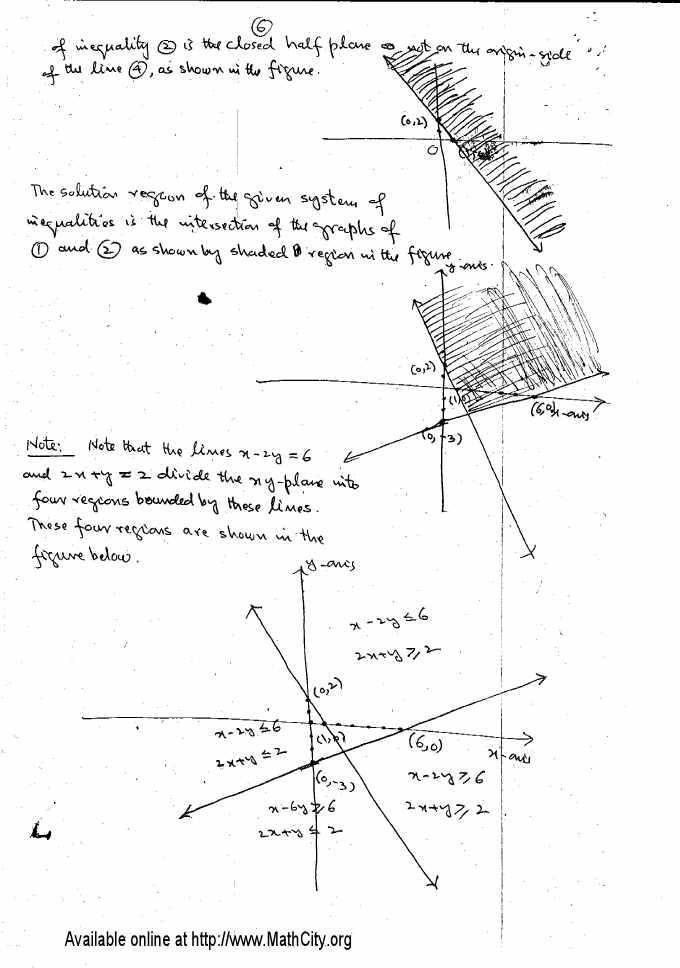 ⑥
of inequality ② is the closed half plane not on the origin-side
of the line ④, as shown in the figure.
(0,2)
O
The solution region of the given system of
inequalities is the intersection of the graphs of
① and ② as shown by shaded region in the figure.
y-axis
(0,2)
(1,0)
(6,0)
x-axis
(0,-3)
Note: Note that the lines x-2y=6
and 2x+y=2 divide the xy-plane into
four regions bounded by these lines.
These four regions are shown in the
figure below.
y-axis
x-2y≤6
2x+y≥2
(0,2)
x-2y≤6
2x+y≤2
(1,0)
(6,0)
x-axis
(0,-3)
x-2y≥6
2x+y≥2
x-6y≥6
2x+y≤2
Available online at http://www.MathCity.org